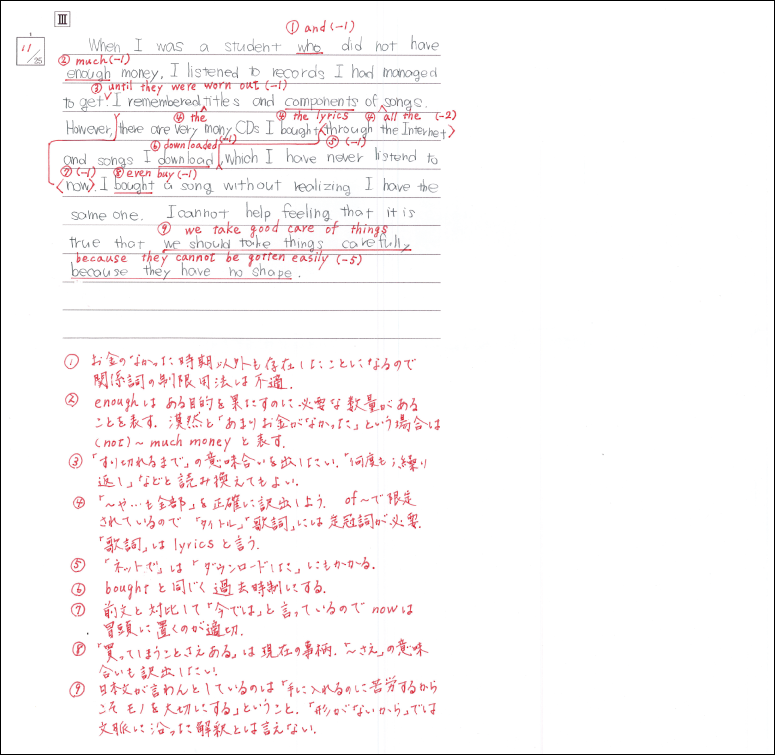 III
① and (-1)
11/25
When I was a student who did not have
② much (-1)
enough money, I listened to records I had managed
③ until they were worn out (-1)
to get. I remembered titles and components of songs.
④ the ④ the lyrics ④ all the (-2)
However, there are very many CDs I bought through the Internet
⑥ downloaded (-1) ⑤ (-1)
and songs I download, which I have never listend to
⑦ (-1) ⑧ even buy (-1)
now. I bought a song without realizing I have the
same one. I cannot help feeling that it is
⑨ we take good care of things
true that we should take things carefully
because they cannot be gotten easily (-5)
because they have no shape.
① お金のなかった時期以外も存在したことになるので
関係詞の制限用法は不適.
② enoughはある目的を果たすのに必要な数量がある
ことを表す. 漠然と「あまりお金がなかった」という場合は
(not) ~ much money と表す.
③ 「すり切れるまで」の意味合いを出したい. 「何度もくり繰り
返し」などと読み換えてもよい.
④ 「~や…も全部」を正確に訳出しよう. of~で限定
されているので「タイトル」「歌詞」には定冠詞が必要.
「歌詞」は lyrics と言う.
⑤ 「ネットで」は「ダウンロードした」にもかかる.
⑥ bought と同じく過去時制にする.
⑦ 前文と対比して「今では」と言っているので now は
冒頭に置くのが適切.
⑧ 「買ってしまうことさえある」は現在の事柄. 「~さえ」の意味
合いも訳出したい.
⑨ 日本文が言わんとしているのは「手に入れるのに苦労するから
こそモノを大切にする」ということ. 「形がないから」では
文脈に沿った解釈とは言えない.